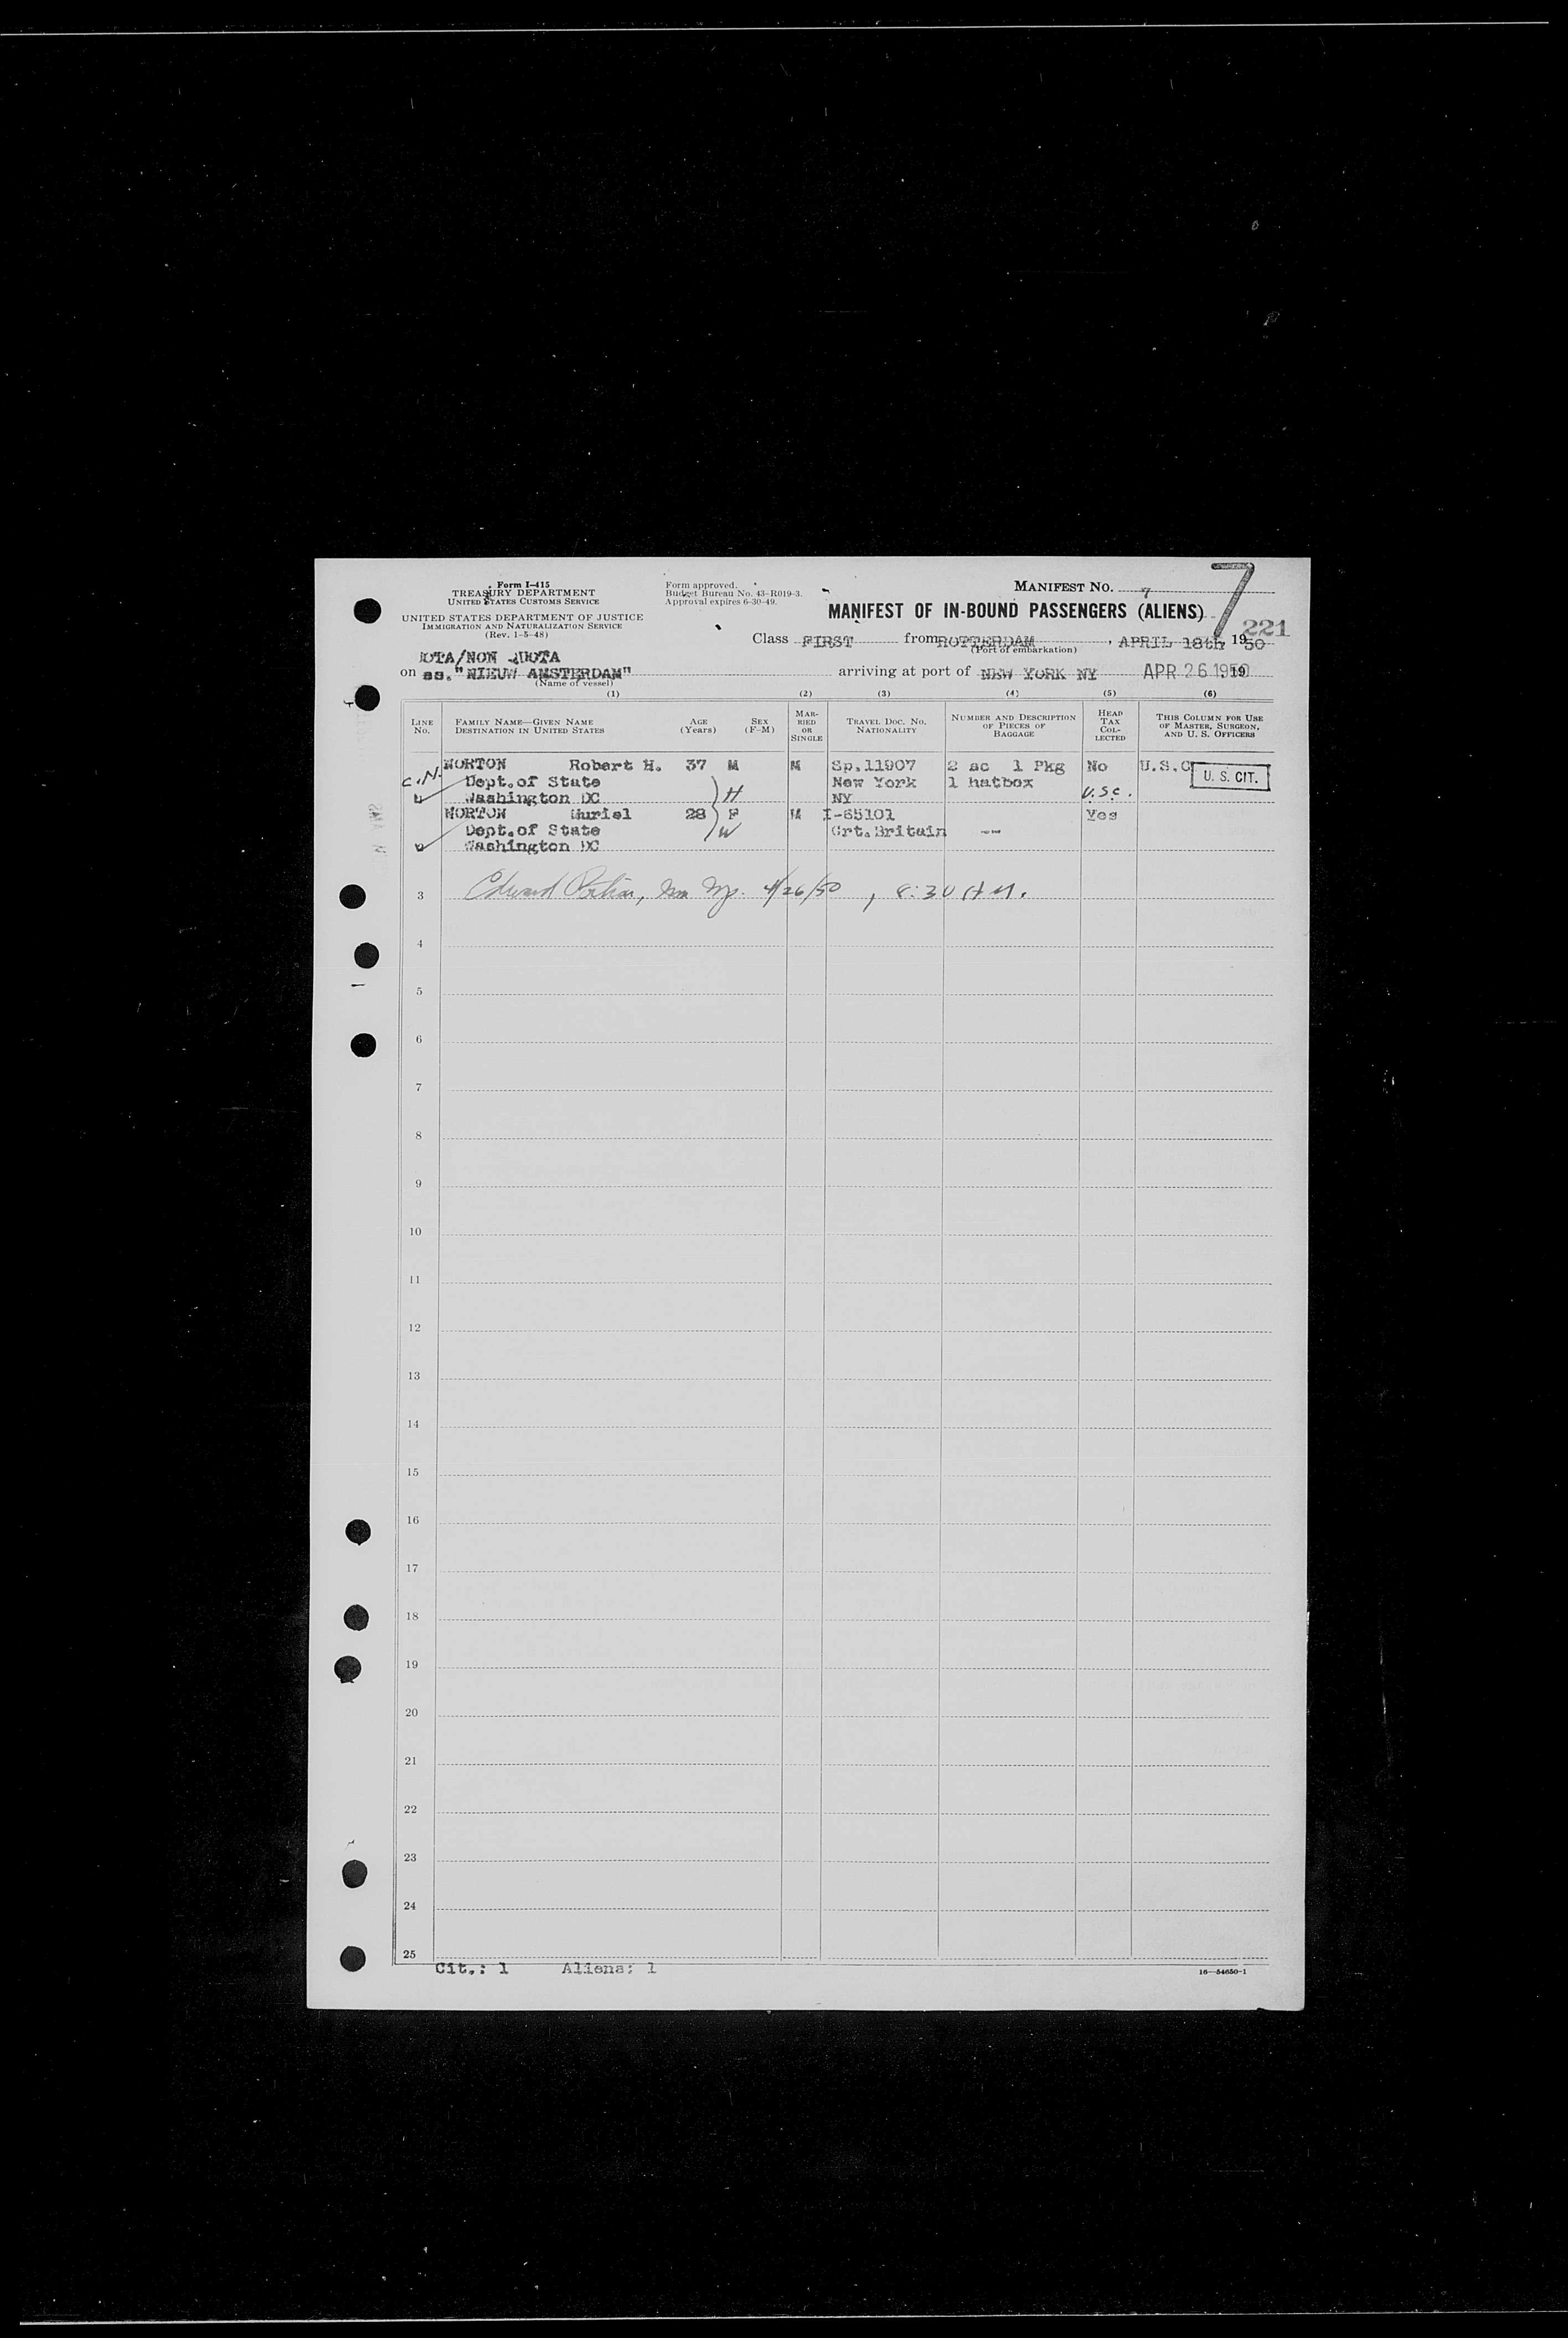 Form I-415
TREASURY DEPARTMENT
UNITED STATES CUSTOMS SERVICE
UNITED STATES DEPARTMENT OF JUSTICE
IMMIGRATION AND NATURALIZATION SERVICE
(Rev. 1-5-48)
Form approved.
Budget Bureau No. 43-R019-3.
Approval expires 6-30-49.
MANIFEST NO. 7
7
MANIFEST OF IN-BOUND PASSENGERS (ALIENS)
221
Class FIRST from ROTTERDAM, APRIL 18th, 1950
(Port of embarkation)
UOTA/NON QUOTA
on ss. "NIEUW AMSTERDAM" arriving at port of NEW YORK NY APR 26 1950 19
(Name of vessel)
(1) (2) (3) (4) (5) (6)
LINE NO. FAMILY NAME—GIVEN NAME DESTINATION IN UNITED STATES AGE (Years) SEX (F-M) MARRIED OR SINGLE TRAVEL DOC. NO. NATIONALITY NUMBER AND DESCRIPTION OF PIECES OF BAGGAGE HEAD TAX COLLECTED THIS COLUMN FOR USE OF MASTER, SURGEON, AND U. S. OFFICERS
NORTON Robert H. 37 M M Sp.11907 2 sc 1 Pkg No U.S.C
C.N. Dept.of State New York 1 hatbox U. S. CIT.
Washington DC H NY U.S.C.
NORTON Muriel 28 F M I-65101 Yes
Dept.of State W Grt.Britain --
Washington DC
3 Edward 4/26/50, 8:30 AM.
4
5
6
7
8
9
10
11
12
13
14
15
16
17
18
19
20
21
22
23
24
25
Cit.: 1 Aliens: 1
16—54650-1